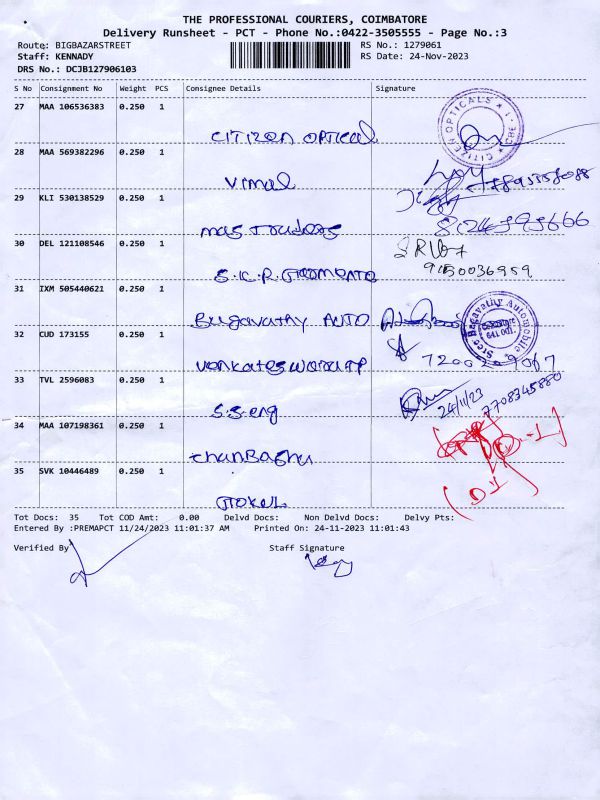 THE PROFESSIONAL COURIERS, COIMBATORE
Delivery Runsheet - PCT - Phone No.:0422-3505555 - Page No.:3
Route: BIGBAZARSTREET
RS No.: 1279061
Staff: KENNADY
RS Date: 24-Nov-2023
DRS No.: DCJB127906103
S No Consignment No Weight PCS Consignee Details Signature
27 MAA 106536383 0.250 1
CITIZEN OPTICAL
CITIZEN OPTICALS
CBE
28 MAA 569382296 0.250 1
Vimal
29 KLI 530138529 0.250 1
mas Traders
30 DEL 121108546 0.250 1
S.K.R.
9150036959
31 IXM 505440621 0.250 1
Bugavathy AUTO
Sree Bagavathy Automobile
32 CUD 173155 0.250 1
33 TVL 2596083 0.250 1
S.S.eng
24/11/23
7708345880
34 MAA 107198361 1 0.250 1
35 SVK 10446489 0.250 1
GOKUL
Tot Docs: 35 Tot COD Amt: 0.00 Delvd Docs: Non Delvd Docs: Delvy Pts:
Entered By :PREMAPCT 11/24/2023 11:01:37 AM Printed On: 24-11-2023 11:01:43
Verified By
Staff Signature